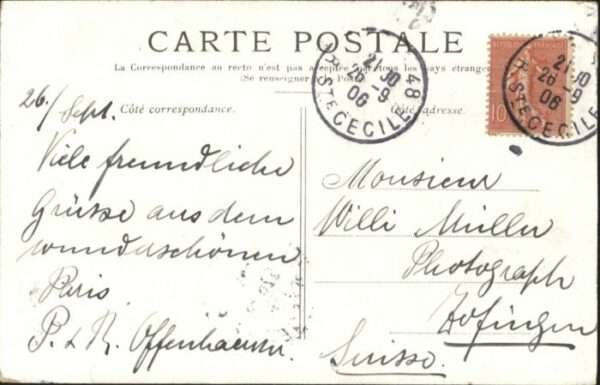 CARTE POSTALE
La Correspondance au recto n'est pas acceptée par tous les pays étrangers
(Se renseigner à la Poste)
Côté correspondance.
Côté adresse.
26./Sept.
Viele freundliche
Grüsse aus dem
wunderschönen
Paris
P. & R.
Monsieur
Willi Müller
Photograph
Zofingen
Suisse.
REPUBLIQUE FRANÇAISE
10
21 30
26 -9
06
R. STE CECILE 48
21 30
26 -9
06
R. STE CECILE